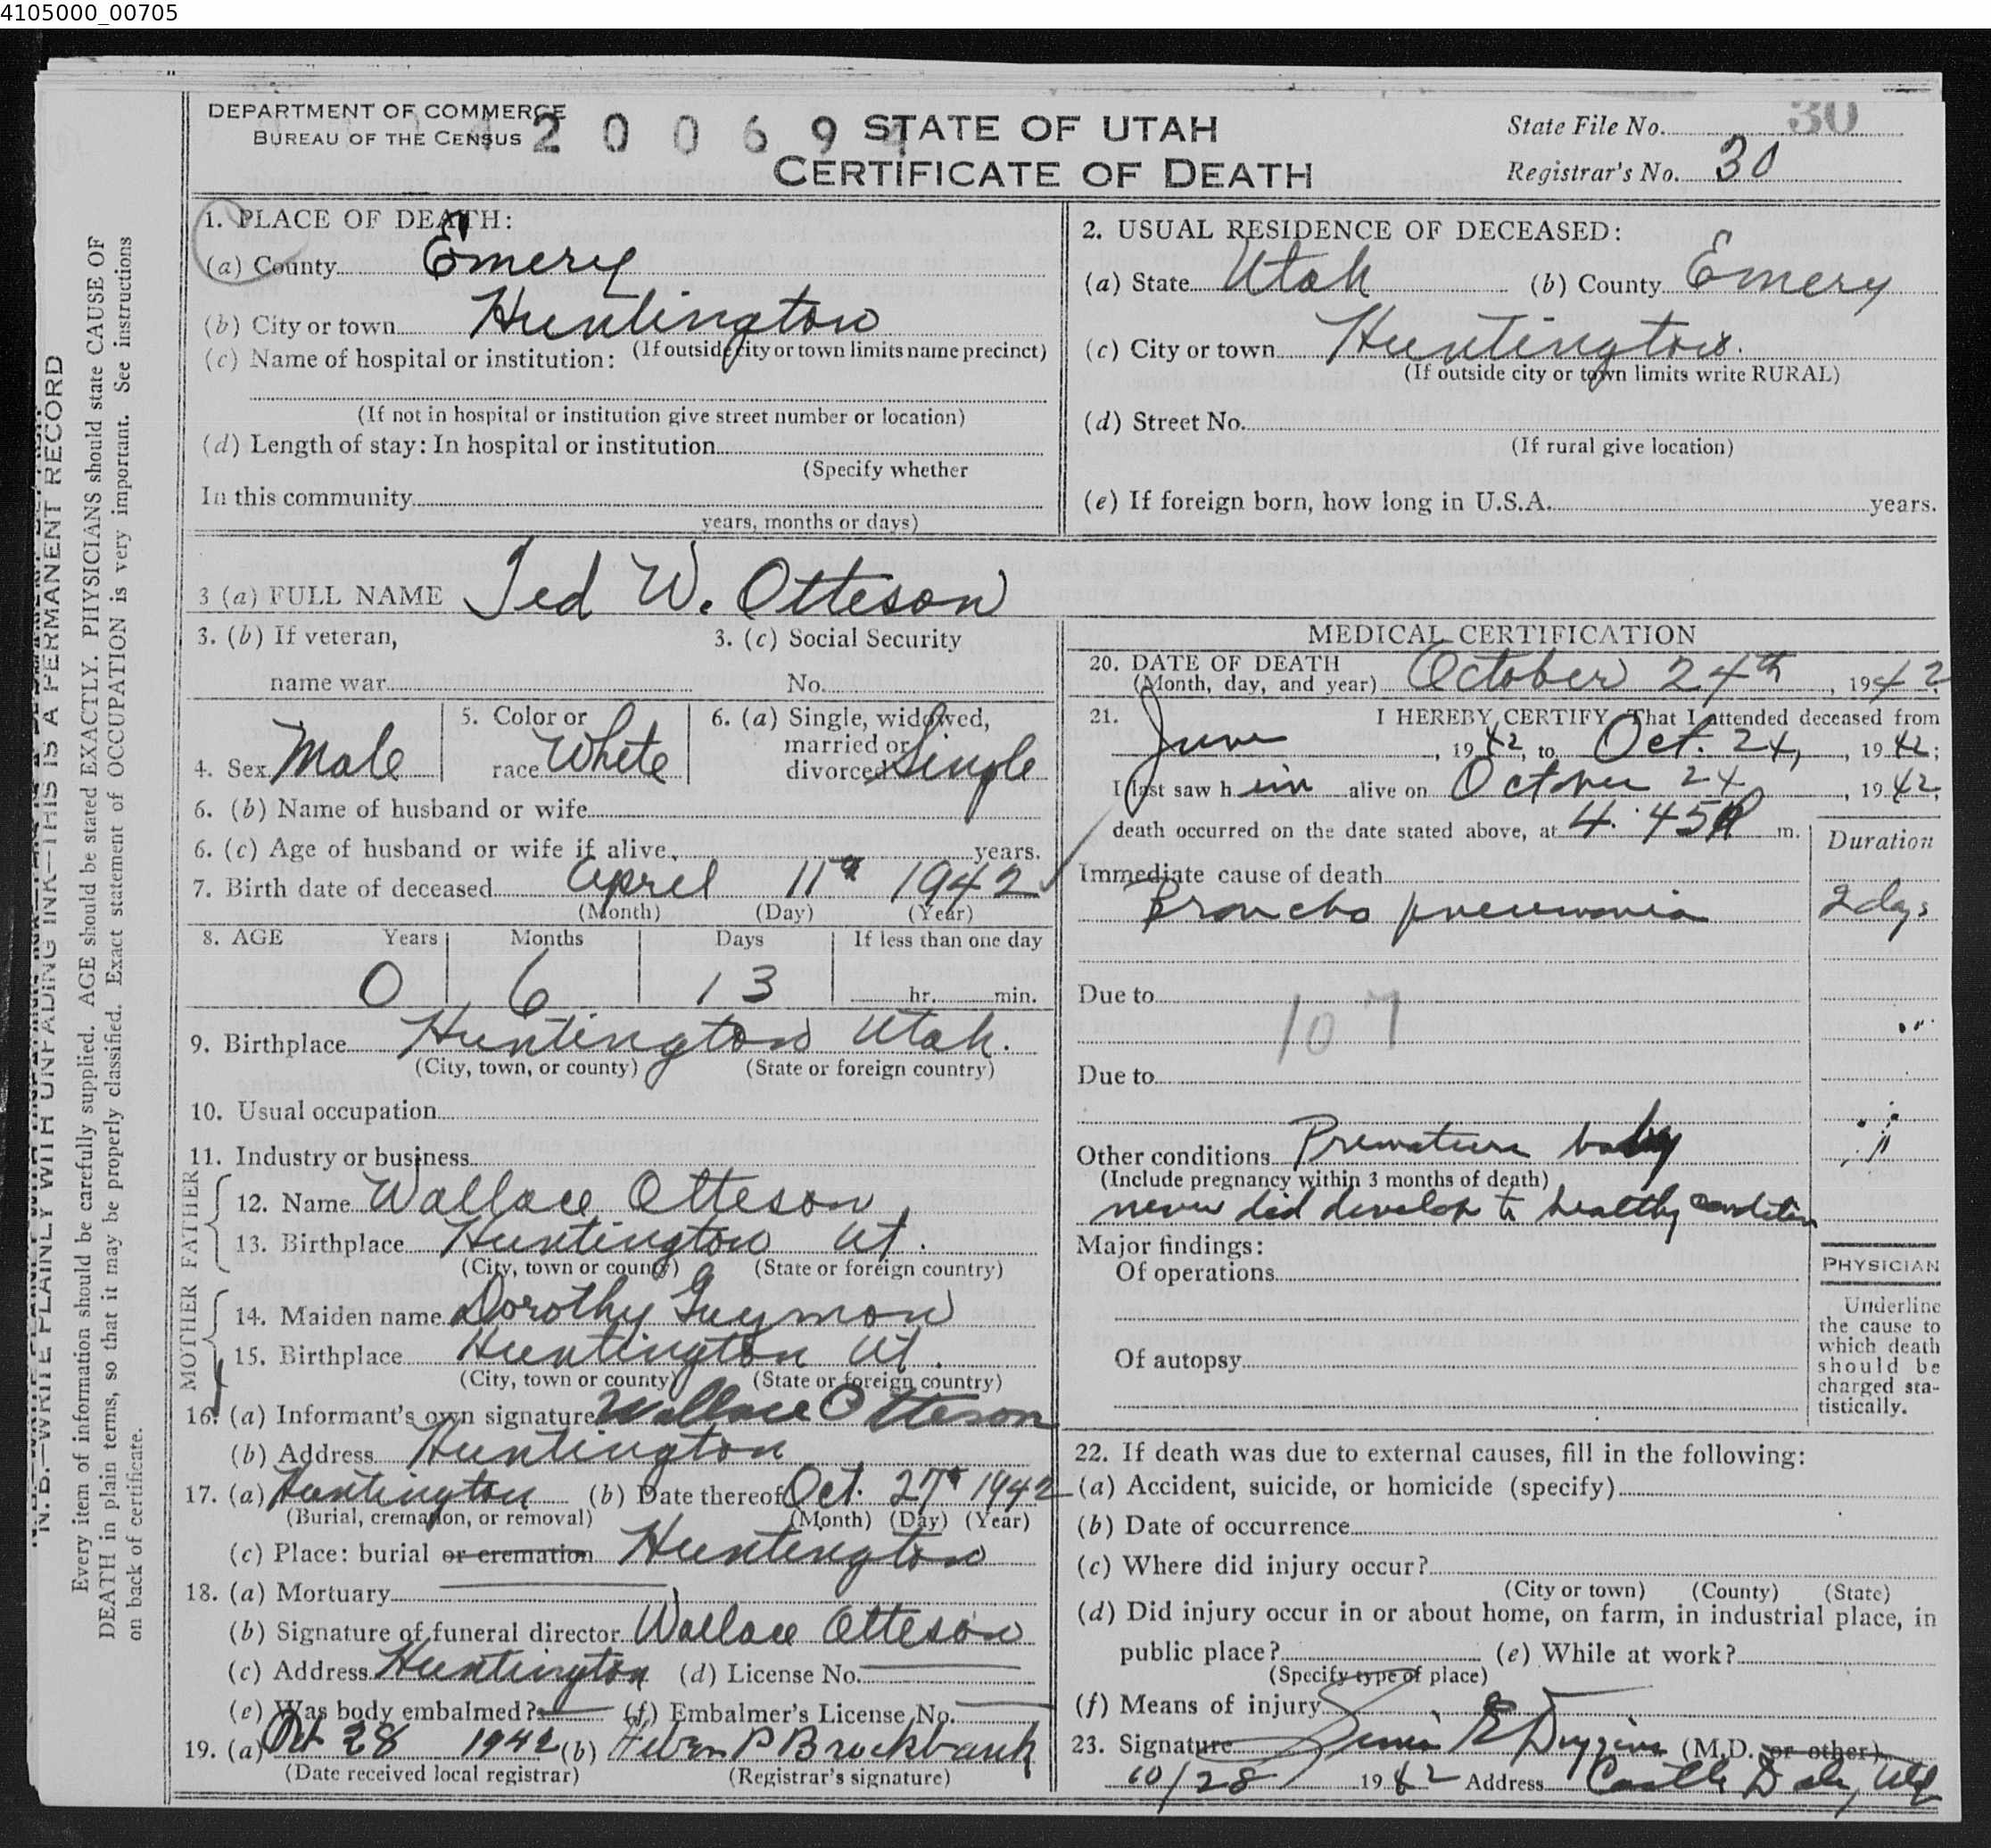 4105000_00705
DEPARTMENT OF COMMERCE
BUREAU OF THE CENSUS
2 0 0 6 9
STATE OF UTAH
CERTIFICATE OF DEATH
State File No. 30
Registrar's No. 30
N. B.—WRITE PLAINLY WITH UNFADING INK—THIS IS A PERMANENT RECORD
Every item of information should be carefully supplied. AGE should be stated EXACTLY. PHYSICIANS should state CAUSE OF
DEATH in plain terms, so that it may be properly classified. Exact statement of OCCUPATION is very important. See instructions
on back of certificate.
1. PLACE OF DEATH:
(a) County Emery
(b) City or town Huntington
(If outside city or town limits name precinct)
(c) Name of hospital or institution:
(If not in hospital or institution give street number or location)
(d) Length of stay: In hospital or institution
(Specify whether
In this community
years, months or days)
2. USUAL RESIDENCE OF DECEASED:
(a) State Utah (b) County Emery
(c) City or town Huntington.
(If outside city or town limits write RURAL)
(d) Street No.
(If rural give location)
(e) If foreign born, how long in U.S.A. years.
3 (a) FULL NAME Ted W. Otteson
3. (b) If veteran, 3. (c) Social Security
name war No.
4. Sex Male 5. Color or race White 6. (a) Single, widowed, married or divorced Single
6. (b) Name of husband or wife
6. (c) Age of husband or wife if alive years.
7. Birth date of deceased April 11th 1942
(Month) (Day) (Year)
8. AGE Years Months Days If less than one day
0 6 13 hr. min.
9. Birthplace Huntington Utah.
(City, town, or county) (State or foreign country)
10. Usual occupation
11. Industry or business
FATHER
12. Name Wallace Otteson
13. Birthplace Huntington Ut.
(City, town or county) (State or foreign country)
MOTHER
14. Maiden name Dorothy Guymon
15. Birthplace Huntington Ut.
(City, town or county) (State or foreign country)
16. (a) Informant's own signature Wallace Otteson
(b) Address Huntington
17. (a) Huntington (b) Date thereof Oct. 27th 1942
(Burial, cremation, or removal) (Month) (Day) (Year)
(c) Place: burial or cremation Huntington
18. (a) Mortuary
(b) Signature of funeral director Wallace Otteson
(c) Address Huntington (d) License No.
(e) Was body embalmed? (f) Embalmer's License No.
19. (a) Oct 28 1942 (b) P Brockbank
(Date received local registrar) (Registrar's signature)
MEDICAL CERTIFICATION
20. DATE OF DEATH
(Month, day, and year) October 24th, 1942
21. I HEREBY CERTIFY, That I attended deceased from
June, 1942, to Oct. 24, 1942;
I last saw him alive on October 24, 1942;
death occurred on the date stated above, at 4:45 P m.
Duration
Immediate cause of death
Broncho pneumonia 2 days
Due to
107
Due to
Other conditions Premature baby
(Include pregnancy within 3 months of death)
never did develop to healthy condition
Major findings:
Of operations
Of autopsy
PHYSICIAN
Underline
the cause to
which death
should be
charged sta-
tistically.
22. If death was due to external causes, fill in the following:
(a) Accident, suicide, or homicide (specify)
(b) Date of occurrence
(c) Where did injury occur?
(City or town) (County) (State)
(d) Did injury occur in or about home, on farm, in industrial place, in
public place? (e) While at work?
(Specify type of place)
(f) Means of injury
23. Signature (M.D. or other)
10/28 1942 Address Castle Dale, Utah